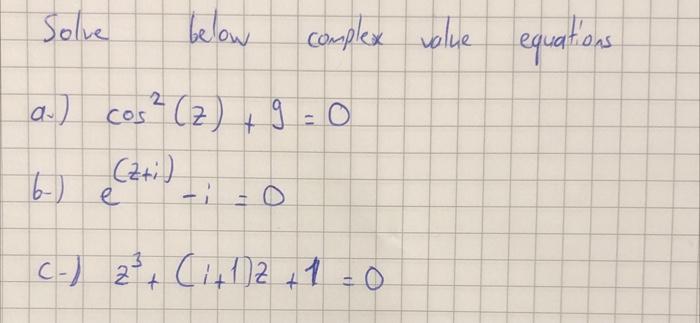 Solve below complex value equations
a-) cos²(z) + 9 = 0
b-) e^(z+i) - i = 0
c-) z³ + (i+1)z + 1 = 0